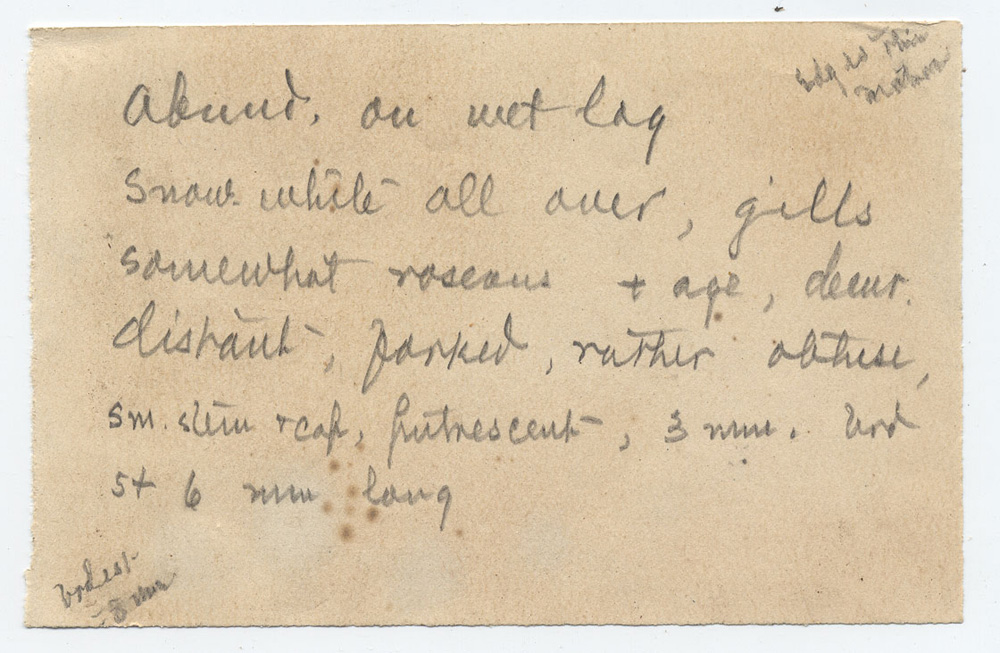 Abund. on wet log
Snow white all over, gills
somewhat roseous + age, decur.
distant, forked, rather obtuse,
sm. stem + cap, putrescent, 3 mm. brd
5+ 6 mm long
brdest
3 mm